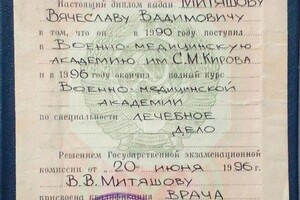 Настоящий диплом выдан МИТЯШОВУ
ВЯЧЕСЛАВУ ВАДИМОВИЧУ
в том, что он в 1990 году поступил
в ВОЕННО-МЕДИЦИНСКУЮ
АКАДЕМИЮ ИМ. С.М.КИРОВА
и в 1996 году окончил полный курс
ВОЕННО-МЕДИЦИНСКОЙ
АКАДЕМИИ
по специальности ЛЕЧЕБНОЕ
ДЕЛО
Решением Государственной экзаменационной
комиссии от „20" ИЮНЯ 1996 г.
В.В.МИТЯШОВУ
присвоена квалификация ВРАЧА